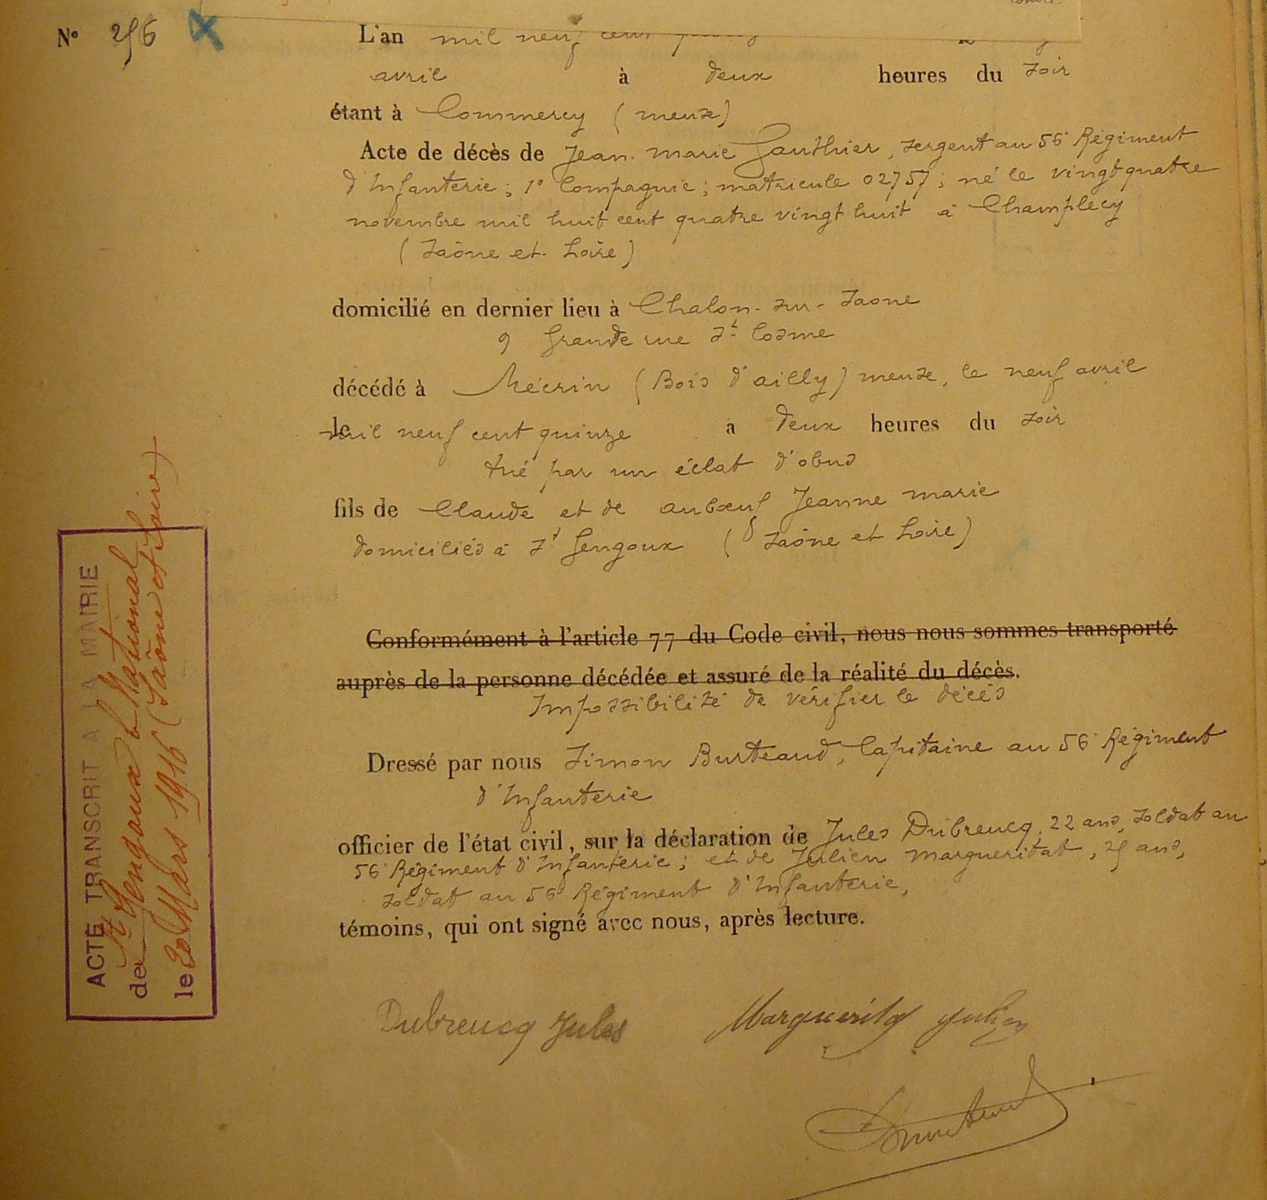 N° 256
L'an mil neuf cent
avril à deux heures du soir
étant à Commercy (meuse)
Acte de décès de Jean-marie Gauthier, sergent au 56e Régiment
d'Infanterie; 1e Compagnie; matricule 02757; né le vingt quatre
novembre mil huit cent quatre vingt huit à Champlecy
(Saône et Loire)
domicilié en dernier lieu à Chalon-sur-Saone
9 Grande rue St Cosme
décédé à Mécrin (Bois d'ailly) meuse, le neuf avril
le mil neuf cent quinze à deux heures du soir
tué par un éclat d'obus
fils de Claude et de auboeuf Jeanne marie
domiciliés à St Gengoux (Saône et Loire)
Conformément à l'article 77 du Code civil, nous nous sommes transporté
auprès de la personne décédée et assuré de la réalité du décès.
Impossibilité de vérifier le décès
Dressé par nous Simon Burteaud, Capitaine au 56e Régiment
d'Infanterie
officier de l'état civil, sur la déclaration de Jules Dubreucq, 22 ans, soldat au
56e Régiment d'Infanterie; et de Julien margueritat, 25 ans,
soldat au 56e Régiment d'Infanterie,
témoins, qui ont signé avec nous, après lecture.
Dubreucq Jules Margueritat Julien
ACTE TRANSCRIT A LA MAIRIE
de St Gengoux le National
le 20 Mars 1916 (Saône et Loire)